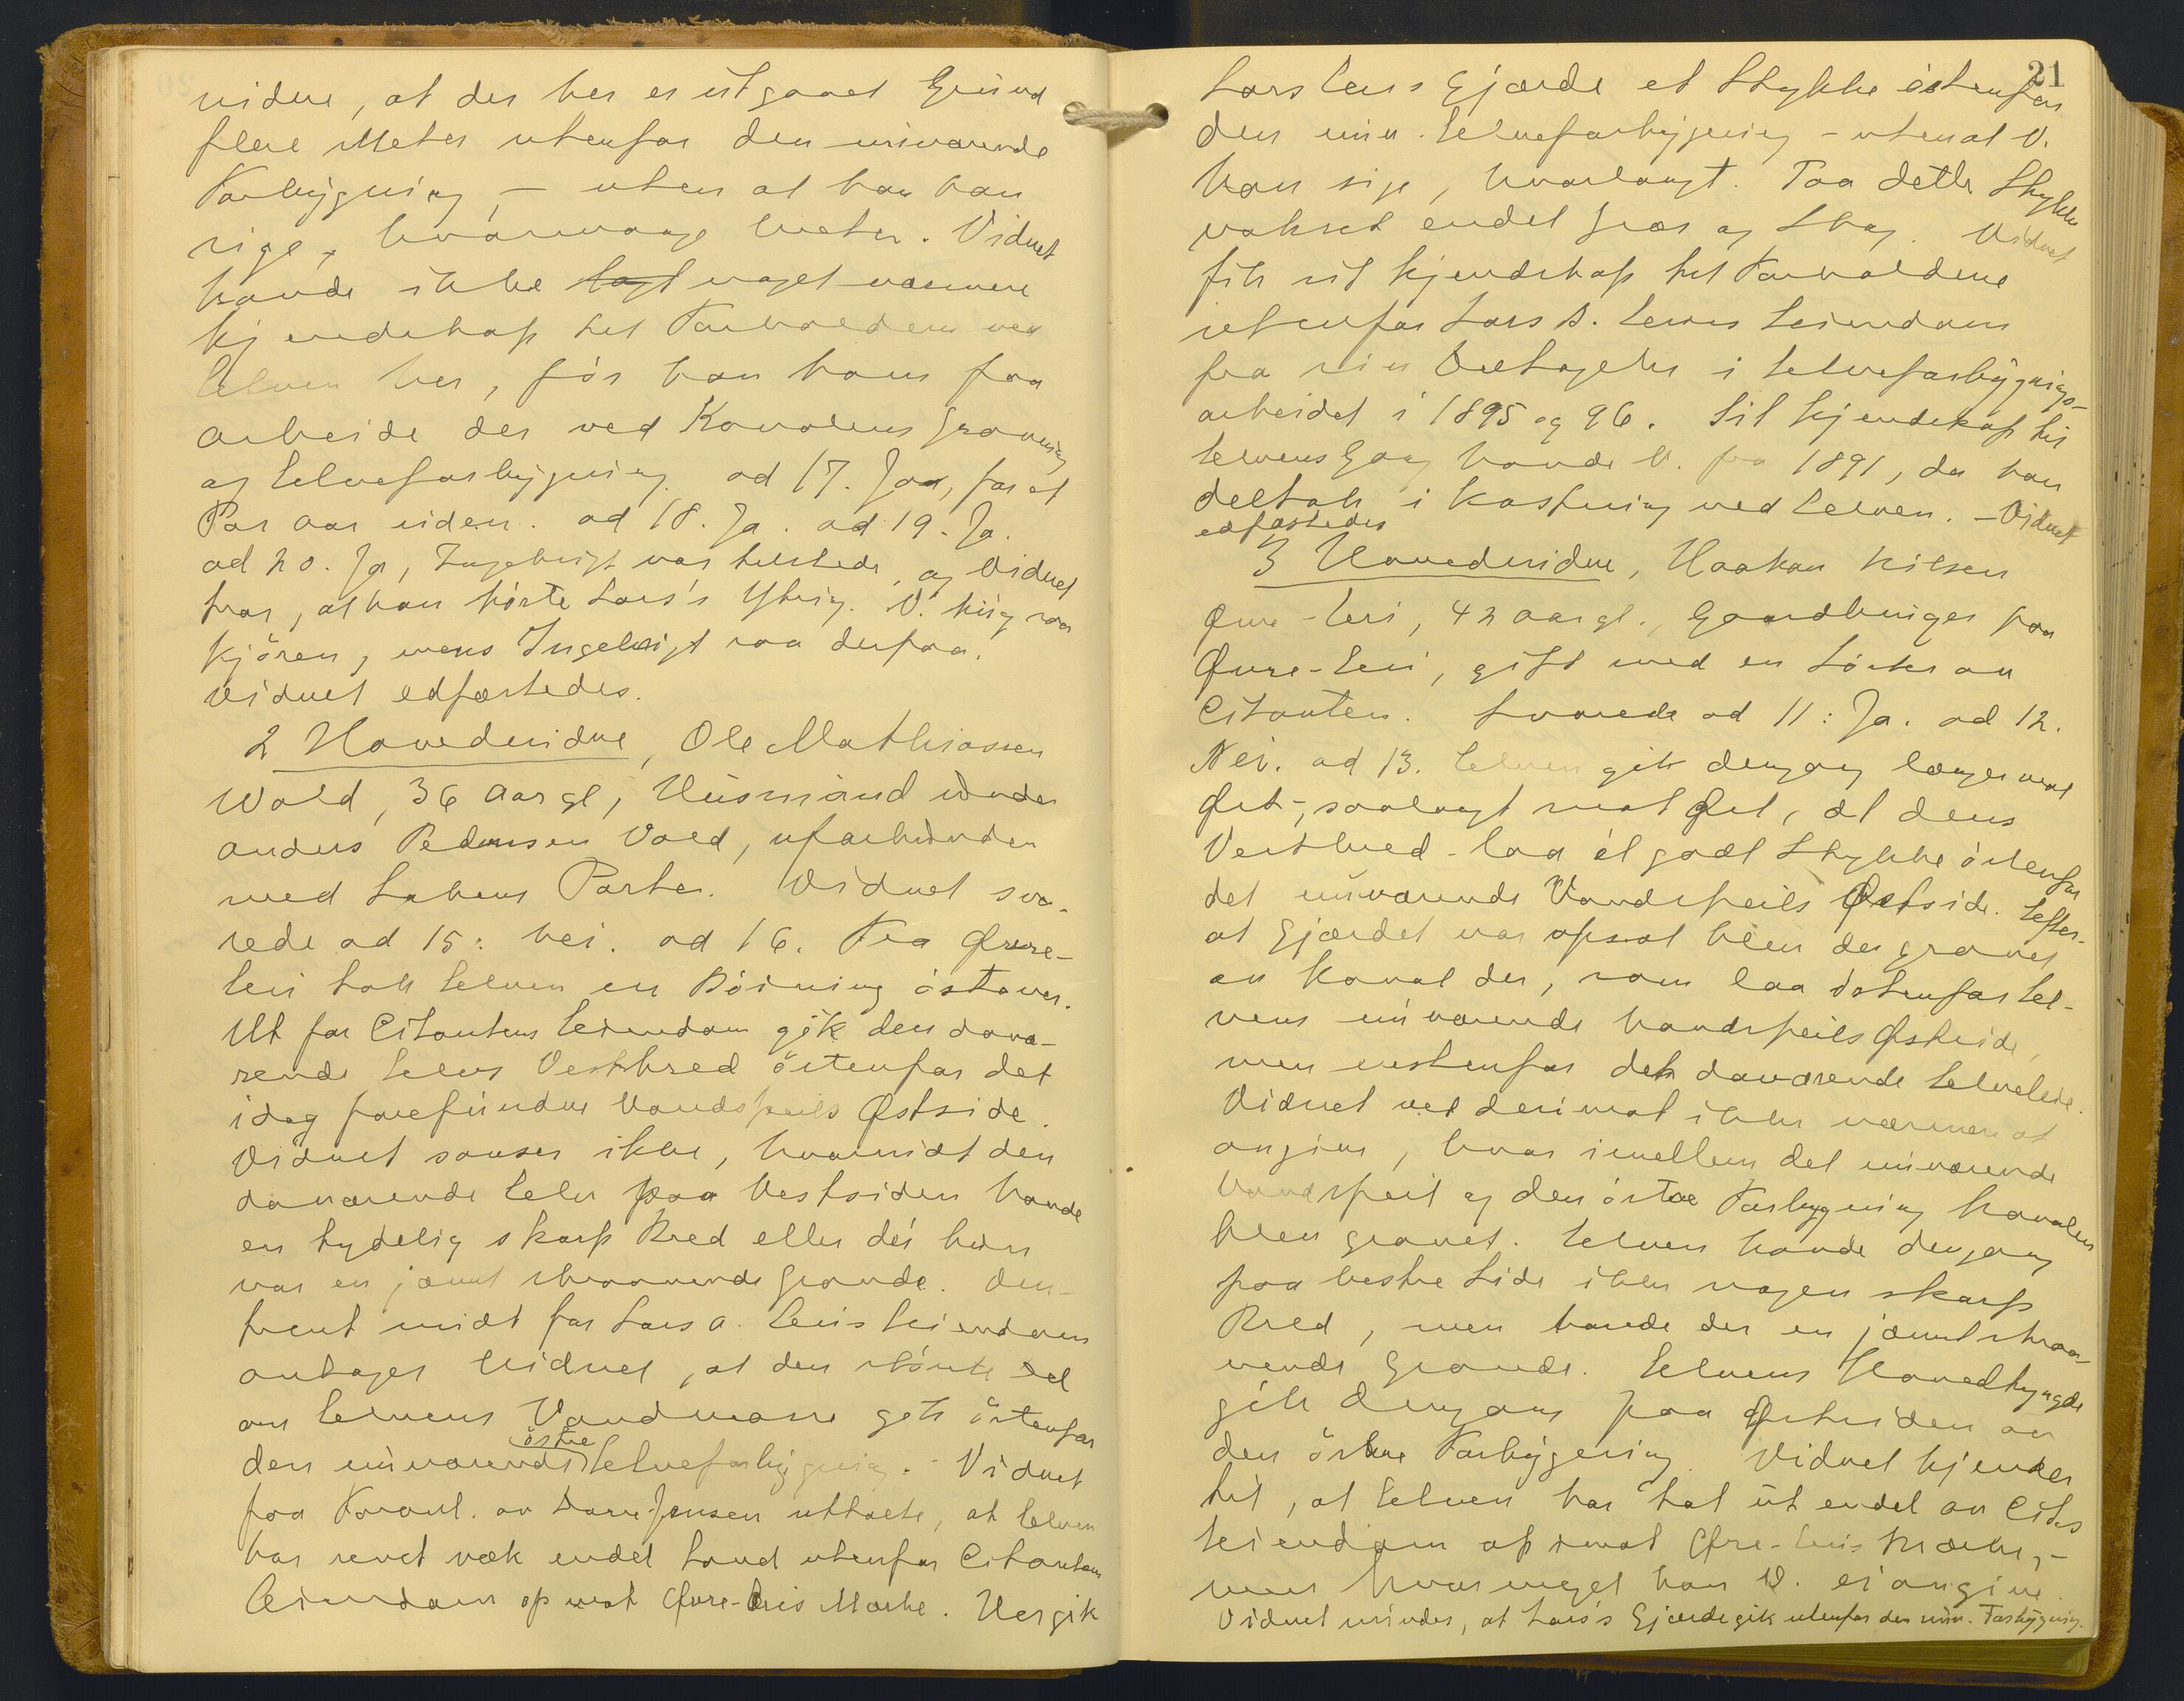 vidne, at der her er utgaaet Grund
flere Meter utenfor den nuværende
Forbygning, – uten at han kan
sige, hvormange Meter. Vidnet
havde ikke noget nærmere
Kjendskap til Forholdene ved
Elven her, før han kom paa
Arbeide der ved Kanalens Gravning
og Elveforbygning. ad 17. Jaa, for et
Par Aar siden. ad 18. Ja. ad 19. Ja.
ad 20. Ja, Ingebrigt var tilstede, og Vidnet
tror, at han hørte Lars's Ytring. V. hug
Kjøren, mens Ingebrigt saa derpaa.
Vidnet edfæstedes.
2 Hovedvidne, Ole Mathiassen
Wold, 36 Aar gl, Husmand under
Anders Pedersen Vold, uforbunden
med Sakens Parter. Vidnet sva-
rede ad 15: Nei. ad 16. Fra Øvre-
Lei tok Elven en Bøining østover.
Ut for Citantens Eiendom gik den dava-
rende Elvs Vestbred østenfor det
idag forefundne Vandspeils Østside.
Vidnet sanser ikke, hvorvidt den
daværende Elv paa Vestsiden havde
en tydelig skarp Bred eller det kun
var en jævnt skraanende Grande. Om-
trent midt for Lars A. Leris Eiendom
antager Vidnet, at den største Del
av Elvens Vandmasse gik østenfor
den nuværende østre Elveforbygning. – Vidnet
paa Foranl. av uttalte, at Elven
har revet væk endel Land utenfor Citantens
Eiendom op mot Øvre-Leris Mærke. Her gik
21
Lars Leris Gjærde et Stykke østenfor
den nuv. Elveforbygning – uten at V.
kan sige, hvorlangt. Paa dette Stykke
vokset endel Græs og Skog. Vidnet
fik sit Kjendskap til Forholdene
utenfor Lars A. Leris Eiendom
fra sin Deltagelse i Elveforbygnings-
arbeidet i 1895 og 96. Sit Kjendskap til
Elvens Gang havde V. fra 1891, da han
deltok i Kastning ved Elven. – Vidnet
edfæstedes
3 Hovedvidne, Haakon Nilsen
Øvre-Leri, 42 Aar gl., Gaardbruger paa
Øvre-Leri, gift med en Søster av
Citanten. Svarede ad 11: Ja. ad 12.
Nei. ad 13. Elven gik dengang længer mot
Øst, saalangt mot Øst, at dens
Vestbred laa et godt Stykke østenfor
det nuværende Vandspeils Østside. Efter-
at Gjærdet var opsat blev der gravet
en Kanal der, som laa østenfor El-
vens nuværende Vandspeils Østside,
men vestenfor det daværende Elveleie.
Vidnet vet derimot ikke nærmere at
angive, hvor imellem det nuværende
Vandspeil og den østre Forbygning Kanalen
blev gravet. Elven havde dengang
paa vestre Side ikke nogen skarp
Bred, men havde der en jævnt skraa-
nende Grande. Elvens Hovedtyngde
gik dengang paa Østsiden av
den østre Forbygning. Vidnet kjender
til, at Elven har tat ut endel av Cit.s
Eiendom op imot Øvre-Leris Mærke, –
men hvor meget kan V. ei angive.
Vidnet minder, at Lars's Gjærde gik utenfor den nuv. Forbygning.